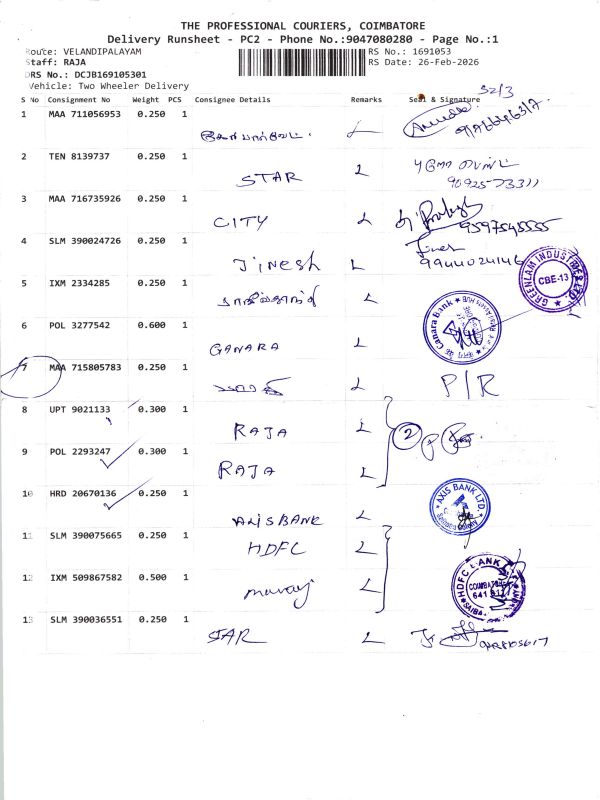 THE PROFESSIONAL COURIERS, COIMBATORE
Delivery Runsheet - PC2 - Phone No.:9047080280 - Page No.:1
Route: VELANDIPALAYAM
RS No.: 1691053
Staff: RAJA
RS Date: 26-Feb-2026
DRS No.: DCJB169105301
Vehicle: Two Wheeler Delivery
32/3
S No Consignment No Weight PCS Consignee Details Remarks Seal & Signature
1 MAA 711056953 0.250 1
2 TEN 8139737 0.250 1
STAR L 9092573311
3 MAA 716735926 0.250 1
CITY L 9597545555
4 SLM 390024726 0.250 1
Jinesh L 9944024146
GREENLAM INDUSTRIES LTD
CBE-13
5 IXM 2334285 0.250 1
L
6 POL 3277542 0.600 1
Canara Bank
GANARA L
7 MAA 715805783 0.250 1
L P/R
8 UPT 9021133 0.300 1
RAJA L 2
9 POL 2293247 0.300 1
RAJA L
10 HRD 20670136 0.250 1
AXIS BANK L
AXIS BANK LTD.
11 SLM 390075665 0.250 1
HDFC L
12 IXM 509867582 0.500 1
L
HDFC BANK
COIMBATORE
13 SLM 390036551 0.250 1
STAR L